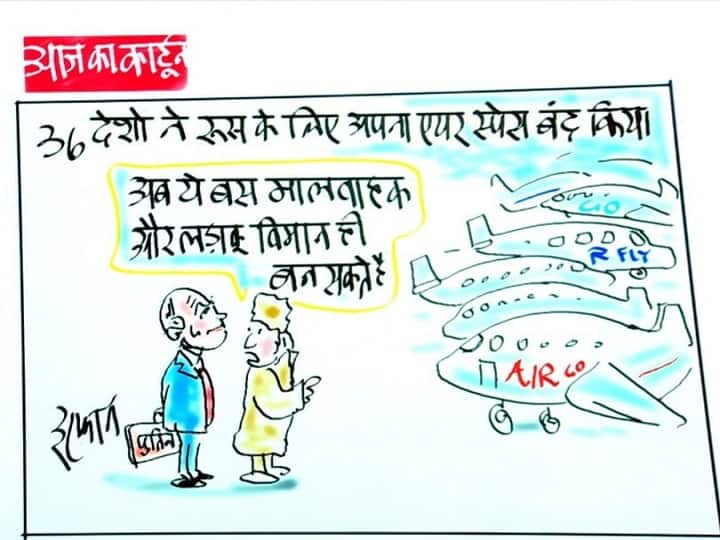 आज का कार्टून
36 देशो ने रूस के लिए अपना एयर स्पेस बंद किया।
अब ये बस मालवाहक
और लड़ाकू विमान ही
बन सकते है
GO
R FLY
AIR GO
पुतिन
इरफान